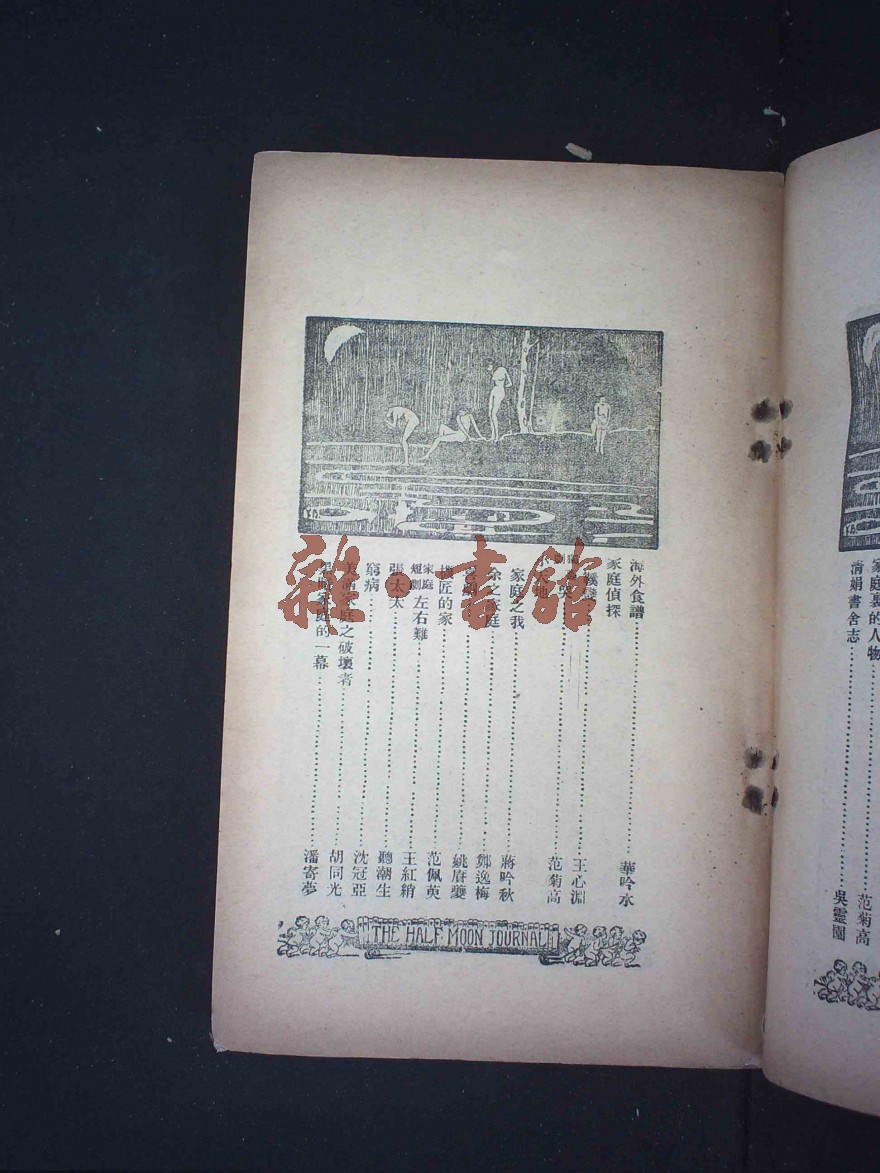 海外食譜 華吟水
家庭偵探
王心淵
范菊高
家庭之我 蔣吟秋
余之家庭 鄭逸梅
姚賡夔
匠的家 范佩萸
家庭短劇 左右難 王紅綃
張太太 聽潮生
窮病 沈冠亞
美滿家庭之破壞者 胡同光
家庭的一幕 潘寄夢
THE HALF MOON JOURNAL
家庭裏的人物 范菊高
清娟書舍志 吳靈園
雜·書館